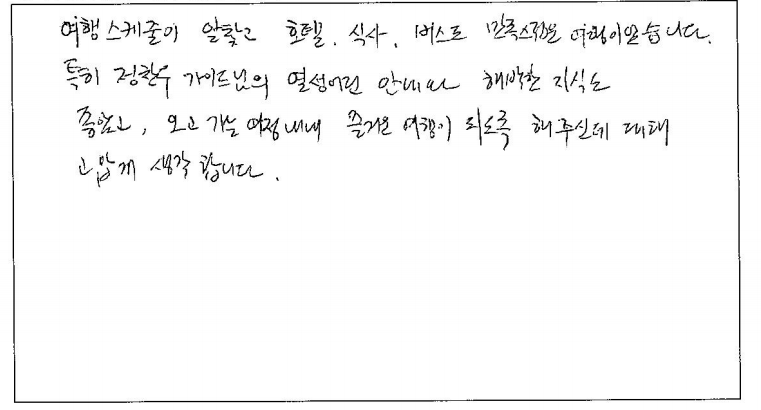 여행스케줄이 알찼고 호텔, 식사, 버스도 만족스러운 여행이었습니다.
특히 정찬우 가이드님의 열성어린 안내와 해박한 지식도
좋았고, 오고 가는 여정내내 즐거운 여행이 되도록 해주신데 대해
고맙게 생각합니다.